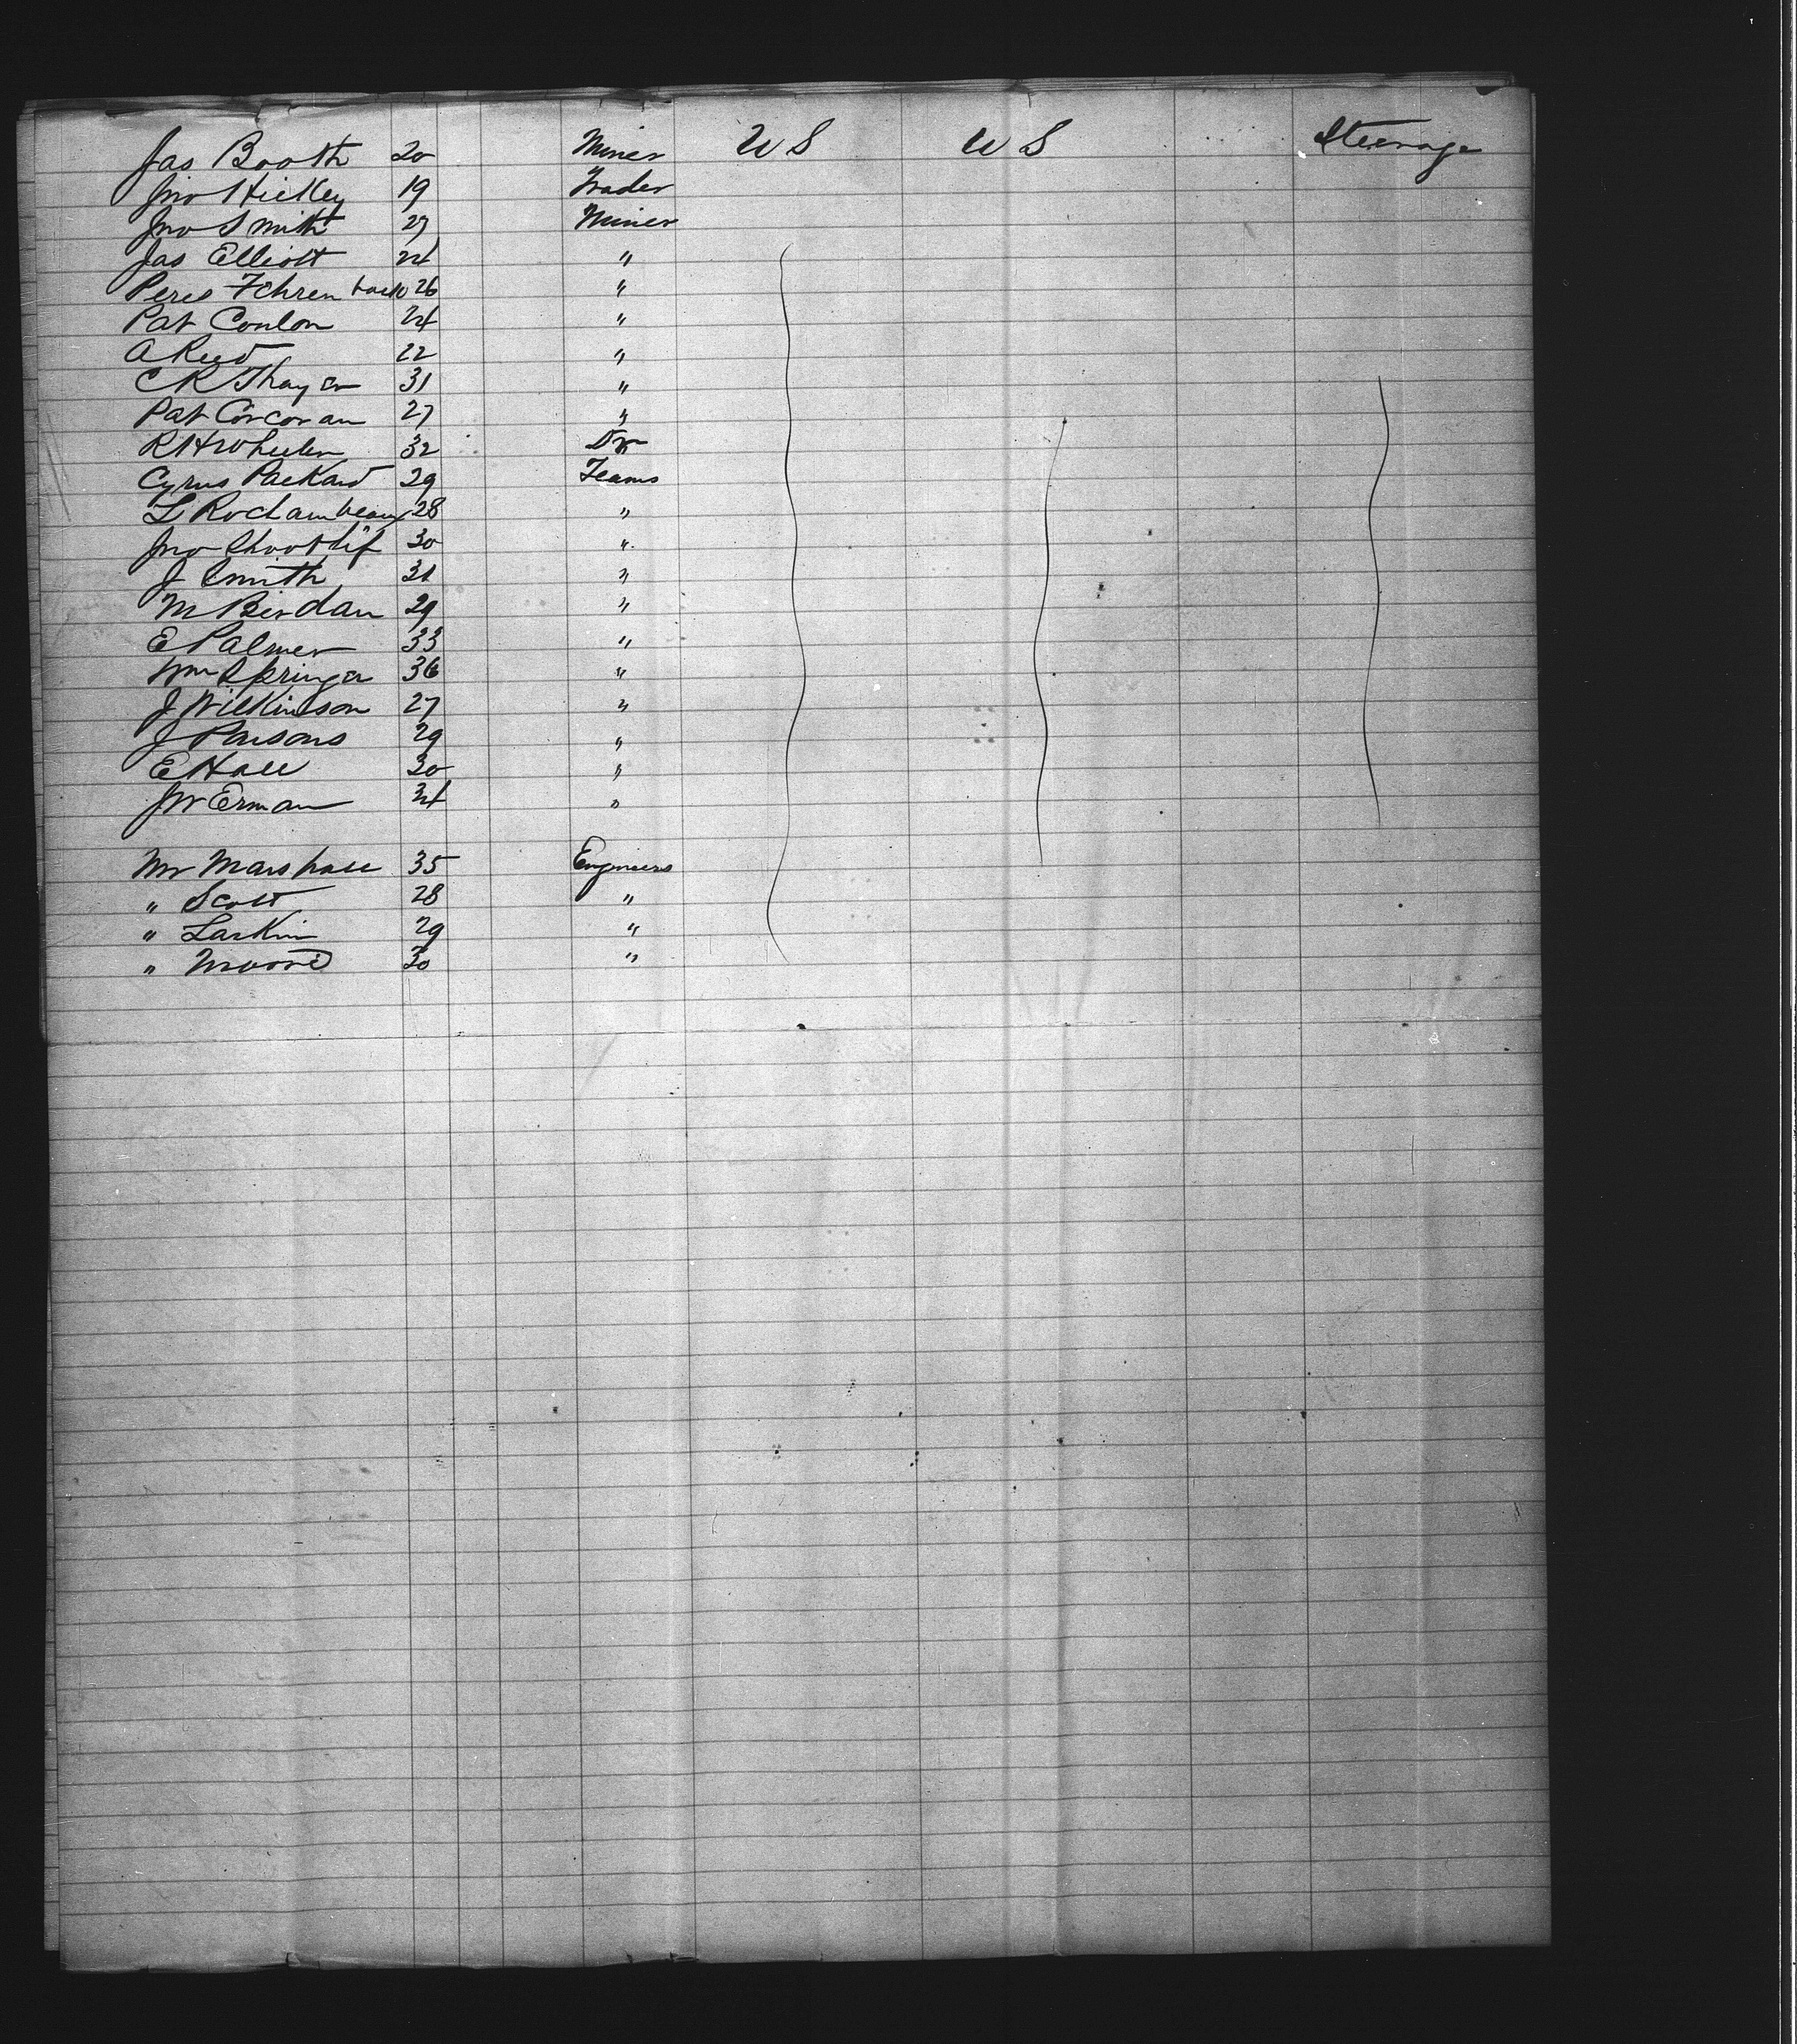 Jas Booth 20 Miner U S U S Steerage
Jno Hickey 19 Trader
Jno Smith 27 Miner
Jas Elliott 24 "
Peres Fehrenback 26 "
Pat Conlon 24 "
A Reed 22 "
C R Thayer 31 "
Pat Corcoran 27 "
R H Wheeler 32 Dr
Cyrus Packard 29 Teams
L Rochambeaux 28 "
Jno Shootlif 30 "
J Smith 31 "
M Birdan 29 "
E Palmer 33 "
Wm Springer 36 "
J Wilkinson 27 "
J Parsons 29 "
E Hall 30 "
J W Erman 34 "
Mr Marshall 35 Engineers
" Scott 28 "
" Larkin 29 "
" Moore 30 "